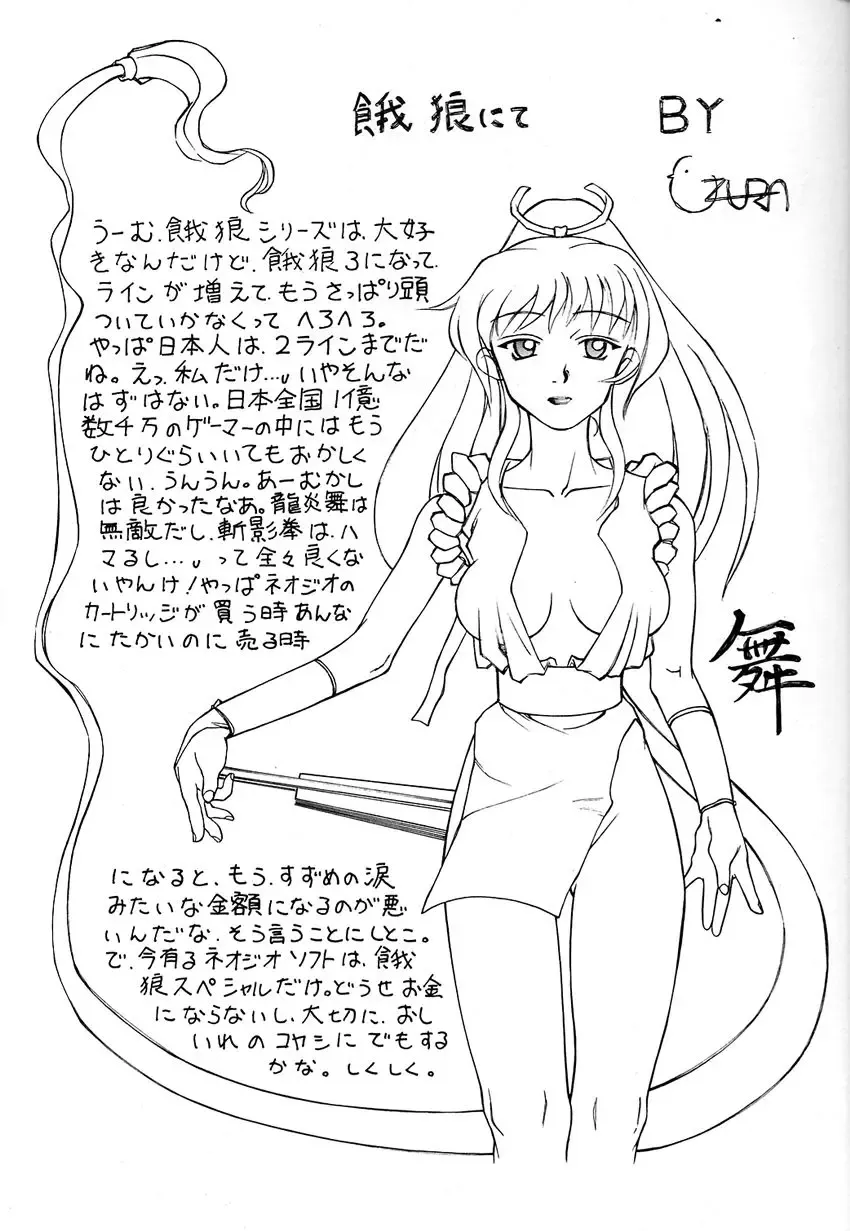 餓狼にて
BY
うーむ、餓狼シリーズは、大好
きなんだけど、餓狼3になって、
ラインが増えて、もうさっぱり頭
ついていかなくってへろへろ。
やっぱ日本人は、2ラインまでだ
ね。えっ、私だけ…。いやそんな
はずはない。日本全国1億
数千万のゲーマーの中にはもう
ひとりぐらいいてもおかしく
ない、うんうん。あーむかし
は良かったなあ。龍炎舞は
無敵だし、斬影拳は、ハ
マるし…。って全々良くな
いやんけ!やっぱネオジオの
カートリッジが買う時あんな
にたかいのに売る時
になると、もう、すずめの涙
みたいな金額になるのが悪
いんだな、そう言うことにしとこ。
で、今有るネオジオソフトは、餓
狼スペシャルだけ。どうせお金
にならないし、大切に、おし
いれのコヤシにでもする
かな。しくしく。
舞